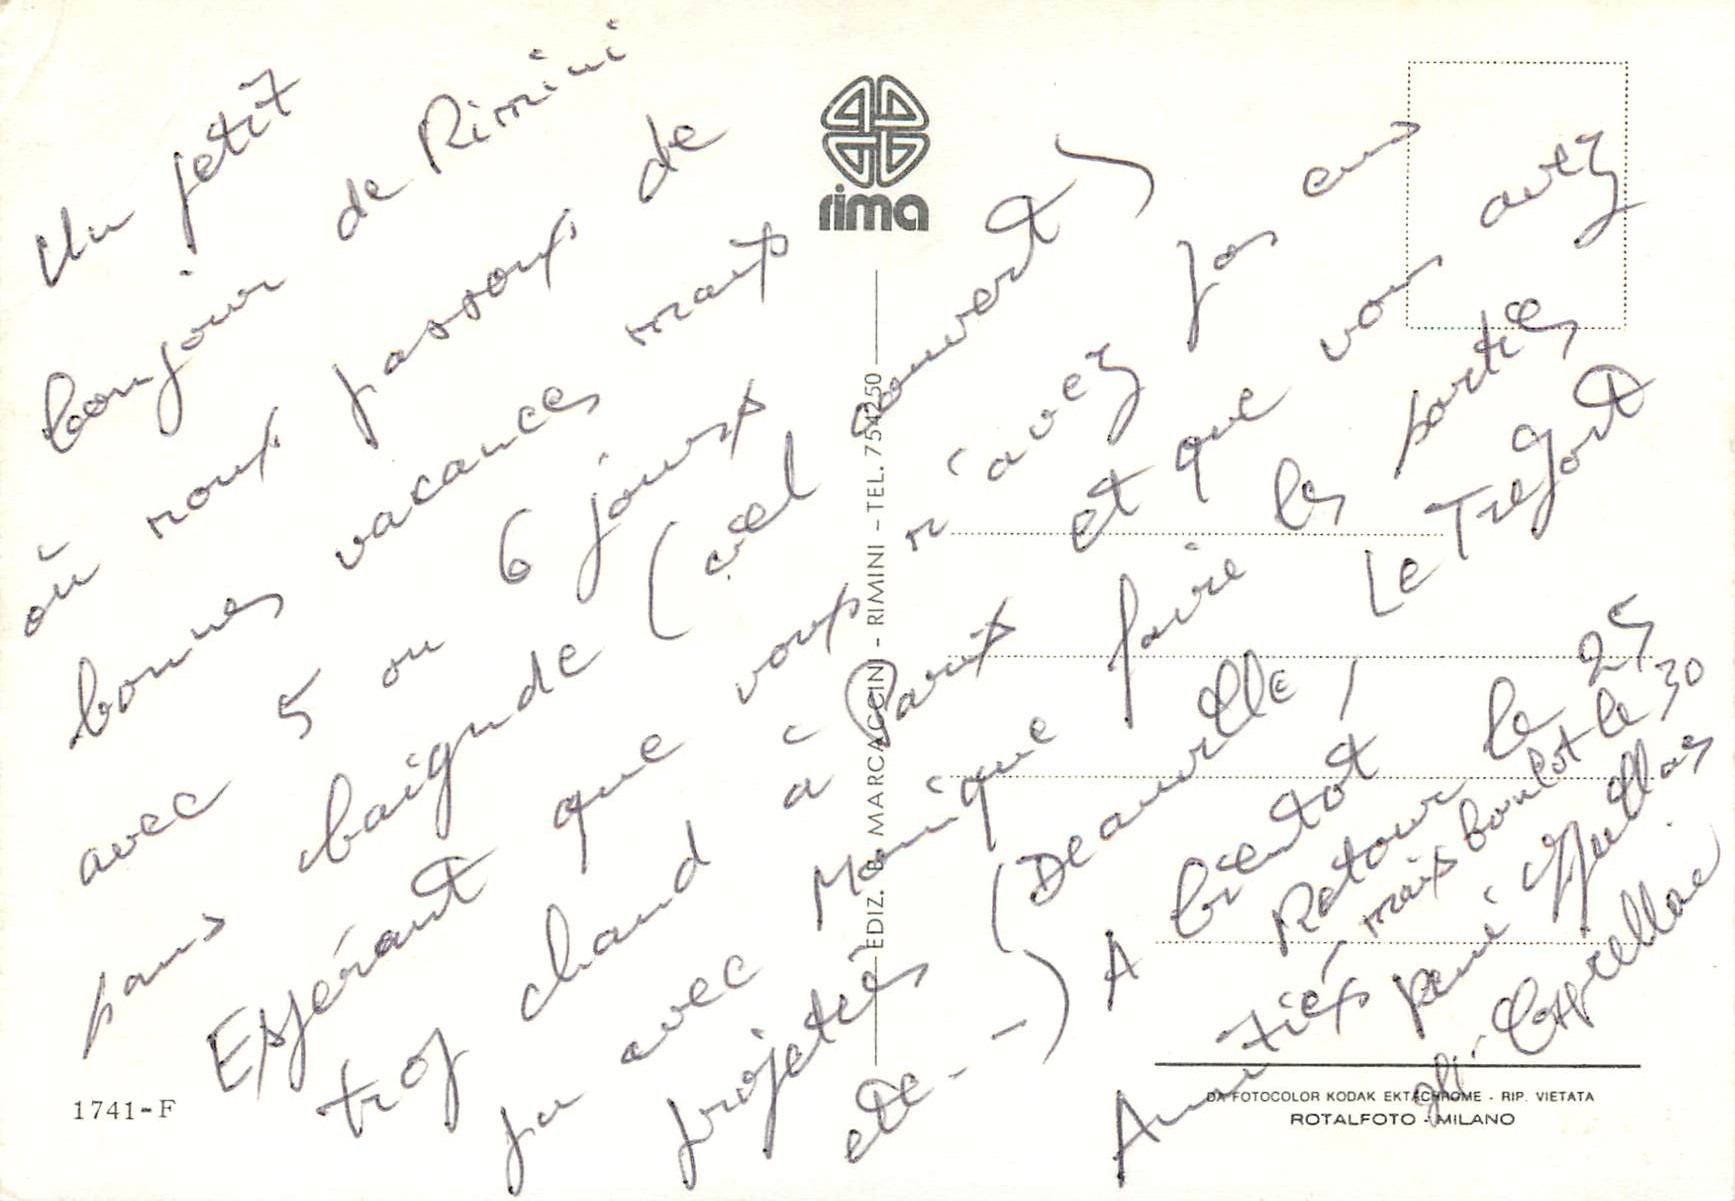 Un petit
bonjour de Rimini
où nous passons de
bonnes vacances mais
avec 5 ou 6 jours
sans baignade (ciel couvert)
Espérant que vous n'avez pas eus
trop chaud à Paris et que vous avez
pu avec Monique faire les sorties
projetées (Deauville, Le Trefort
etc - -) A bientot
Retour le 25
mais boulot le 30
Amitiés
gli Cappellari
rima
EDIZ. B. MARCACCINI - RIMINI - TEL. 754250
1741-F
DA FOTOCOLOR KODAK EKTACHROME - RIP. VIETATA
ROTALFOTO - MILANO